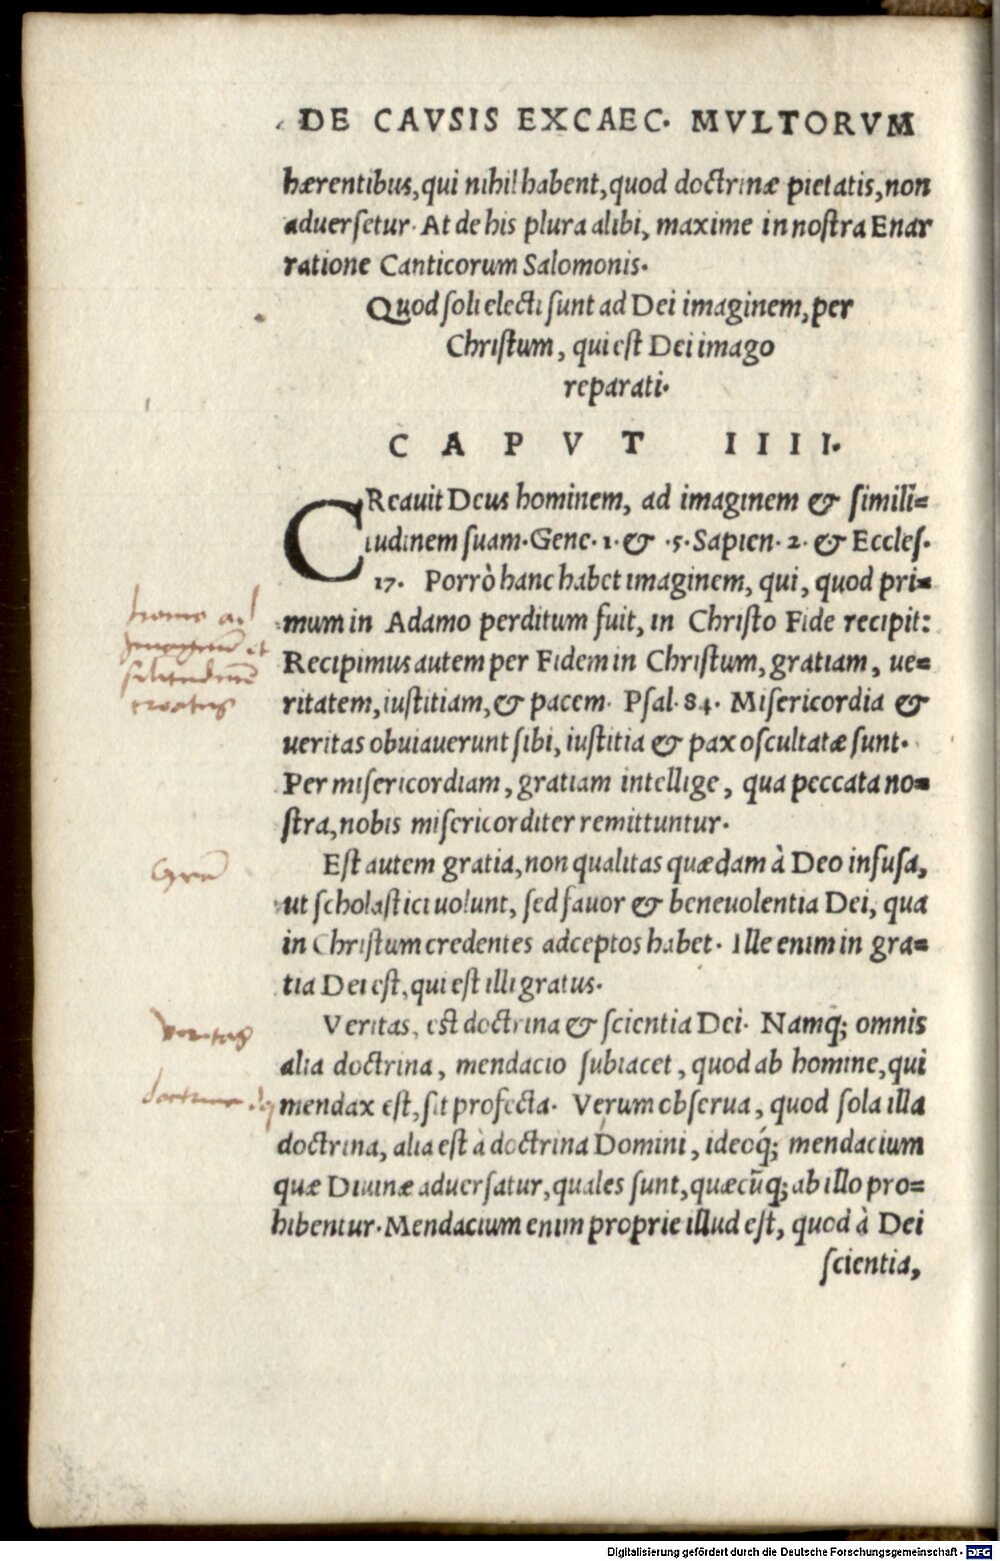 DE CAVSIS EXCAEC. MVLTORVM
hærentibus, qui nihil habent, quod doctrinæ pietatis, non
aduersetur. At de his plura alibi, maxime in nostra Enar
ratione Canticorum Salomonis.
Quod soli electi sunt ad Dei imaginem, per
Christum, qui est Dei imago
reparati.
CAPVT IIII.
CReauit Deus hominem, ad imaginem & simili=
tudinem suam. Gene. 1. & .5. Sapien. 2. & Eccles.
17. Porrò hanc habet imaginem, qui, quod pri=
homo ad
mum in Adamo perditum fuit, in Christo Fide recipit:
imaginē et
Recipimus autem per Fidem in Christum, gratiam, ue=
creatus
ritatem, iustitiam, & pacem. Psal. 84. Misericordia &
ueritas obuiauerunt sibi, iustitia & pax oscultatæ sunt.
Per misericordiam, gratiam intellige, qua peccata no=
stra, nobis misericorditer remittuntur.
Grā
Est autem gratia, non qualitas quædam à Deo infusa,
ut scholastici uolunt, sed fauor & beneuolentia Dei, qua
in Christum credentes adceptos habet. Ille enim in gra=
tia Dei est, qui est illi gratus.
veritas
Veritas, est doctrina & scientia Dei. Namq; omnis
alia doctrina, mendacio subiacet, quod ab homine, qui
doctrina
mendax est, sit profecta. Verum obserua, quod sola illa
doctrina, alia est à doctrina Domini, ideoq́; mendacium
quæ Diuinæ aduersatur, quales sunt, quæcūq; ab illo pro=
hibentur. Mendacium enim proprie illud est, quod à Dei
scientia,
Digitalisierung gefördert durch die Deutsche Forschungsgemeinschaft - DFG